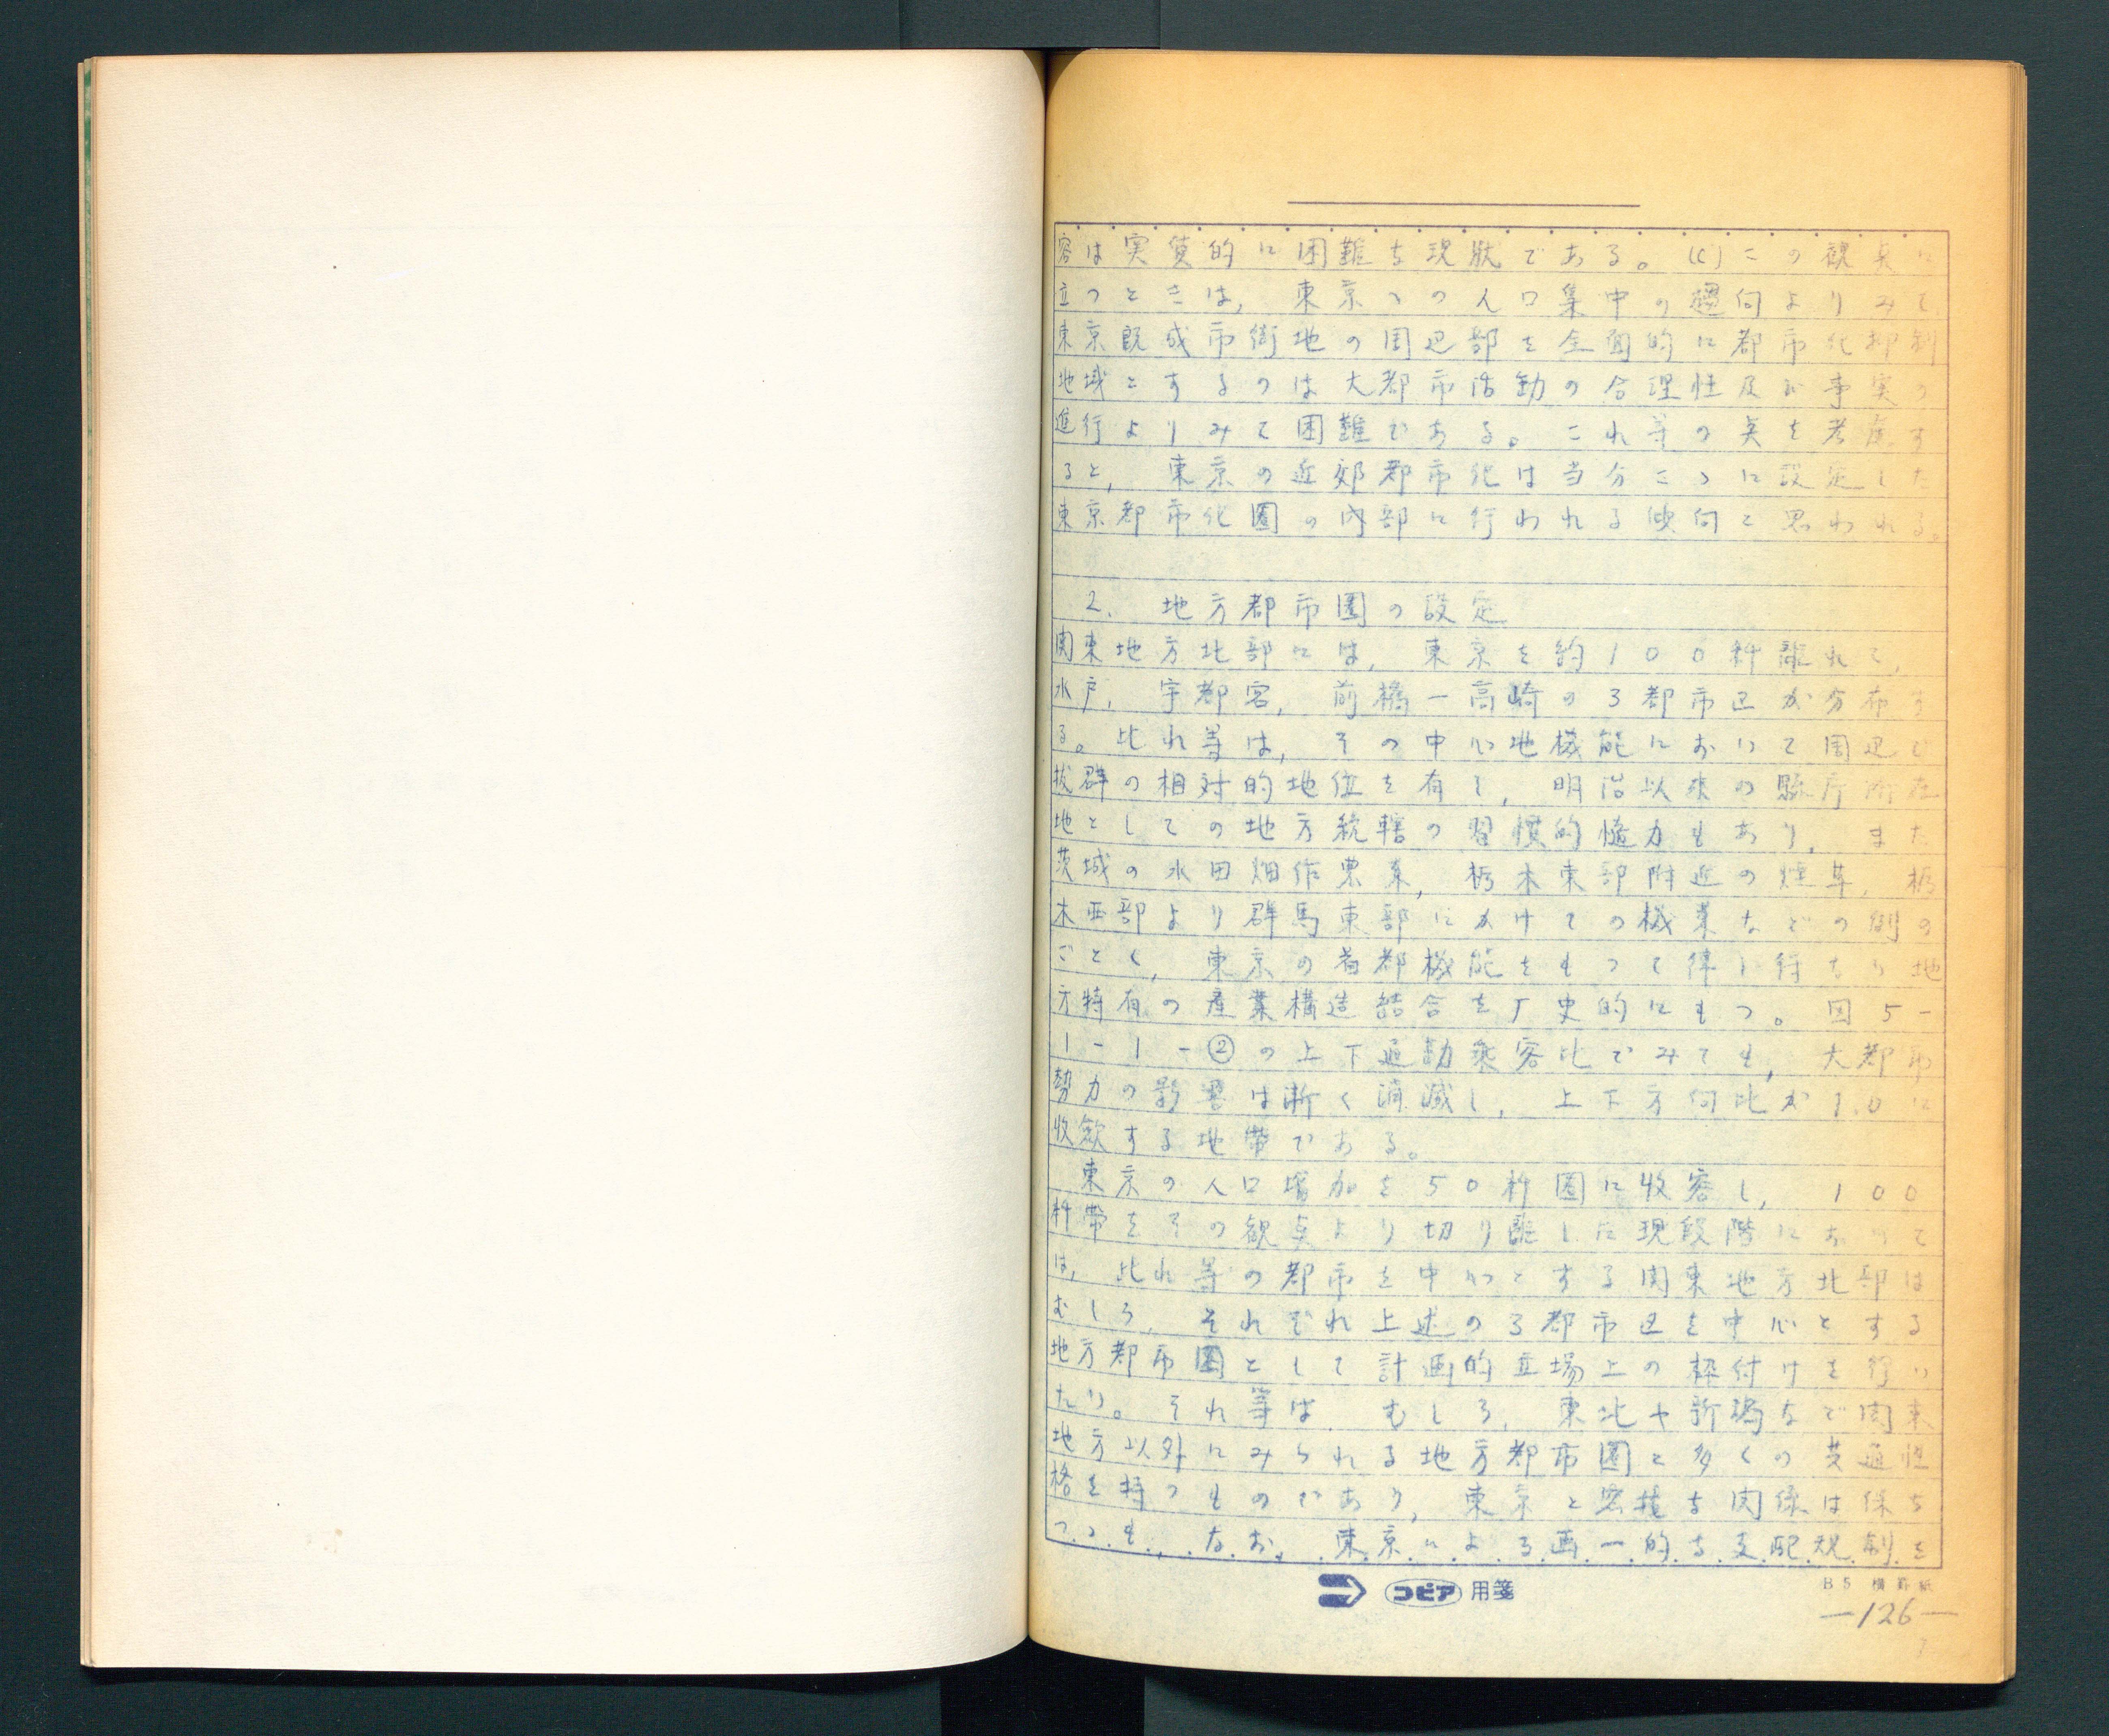 容は実質的に困難な現状である。(C)この観点に
立つときは,東京への人口集中の趨向よりみて
東京既成市街地の周辺部を全面的に都市化抑制
地域とするのは大都市活動の合理性及び事実の
進行よりみて困難である。これ等の点を考慮す
ると,東京の近郊都市化は当分こゝに設定した
東京都市化圏の内部に行われる傾向と思われる。
2. 地方都市圏の設定
関東地方北部には,東京を約100粁離れて,
水戸,宇都宮,前橋-高崎の3都市区が分布す
る。此れ等は,その中心地機能において周辺で
抜群の相対的地位を有し,明治以来の縣庁所在
地としての地方統轄の習慣的惰力もあり,また
茨城の水田畑作農業,栃木東部附近の煙草,栃
木西部より群馬東部にかけての機業などの例の
ごとく,東京の首都機能をもって律し得ない地
方特有の産業構造結合を歴史的にもつ。図5-
1-1-②の上下通勤乗客比でみても,大都市
勢力の影響は漸く消滅し,上下方向比が1.0に
收歛する地帯である。
東京の人口増加を50粁圏に收容し,100
粁帯をその観点より切り離した現段階において
は,此れ等の都市を中心とする関東地方北部は
むしろ,それぞれ上述の3都市区を中心とする
地方都市圏として計画的立場上の枠付けを行い
たい。それ等は,むしろ,東北や新潟など関東
地方以外にみられる地方都市圏と多くの共通性
格を持つものであり,東京と密接な関係は保ち
つゝも,なお,東京による画一的な支配規制を
コピア 用箋
B5 横罫紙
—126—